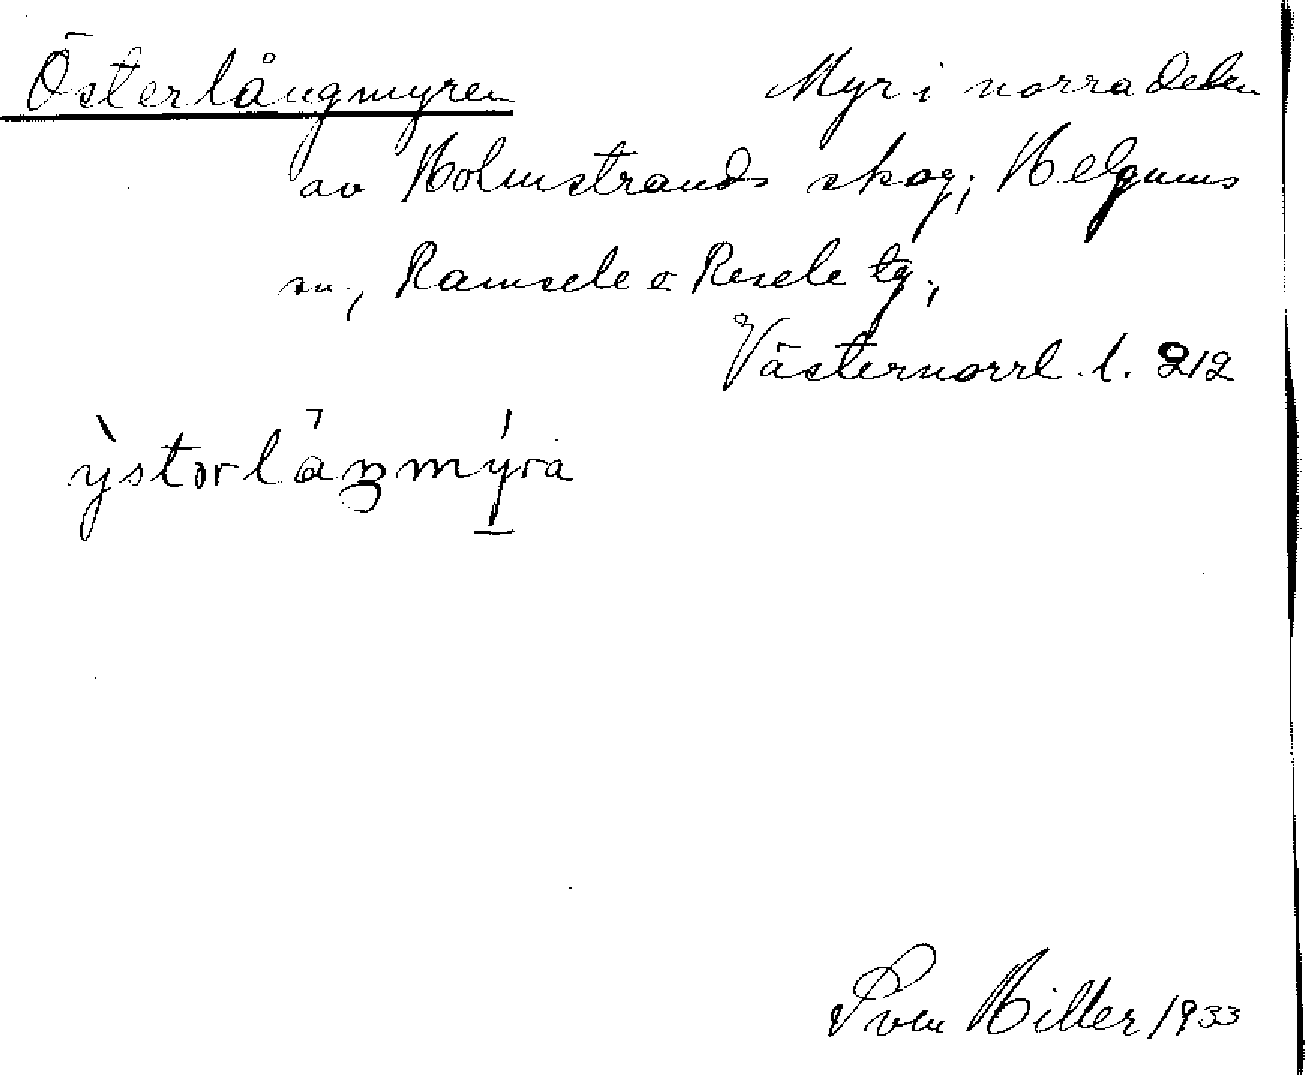 Österlångmyren Myr i norra delen
av Holmstrands skog; Helgums
sn., Ramsele o Resele tg.,
Västernorrl. l. 212
ỳstərlåŋmýra
Sven Hiller 1933